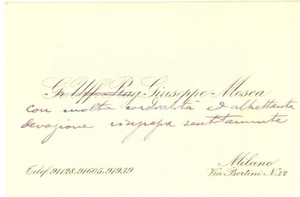 Gr. Uff. Rag. Giuseppe Mosca
con molta cordialità ed altrettanta
devozione sentitamente
Telef. 91128. 91605. 97939
Milano
Via Bertini N. 12